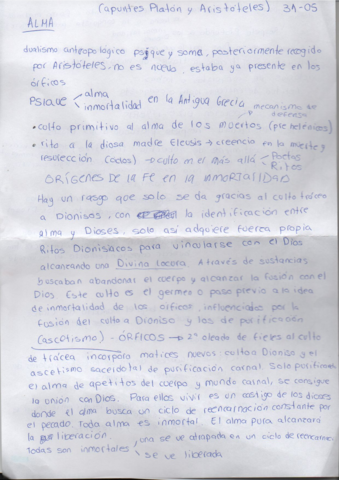 (apuntes Platón y Aristóteles) 3A-05
ALMA
dualismo antropológico psique y soma, posteriormente recogido
por Aristóteles, no es nuevo, estaba ya presente en los
órficos
Psique alma
inmortalidad en la Antigua Grecia
mecanismo de defensa
• culto primitivo al alma de los muertos (pre helénicos)
• rito a la diosa madre Eleusis → creencia en la muerte y
resurrección (ciclos) → culto en el más allá Poetas
Ritos
ORÍGENES DE LA FE EN LA INMORTALIDAD
Hay un rasgo que solo se da gracias al culto
a Dionisos, con la identificación entre
alma y Dioses, solo así adquiere fuerza propia
Ritos Dionisiacos para vincularse con el Dios
alcanzando una Divina locura. A través de sustancias
buscaban abandonar el cuerpo y alcanzar la fusión con el
Dios Este culto es el germen o paso previo a la idea
de inmortalidad de los órficos, influenciados por la
fusión del culto a Dioniso y los de purificación
(ascetismo) - ÓRFICOS → 2ª oleada de fieles al culto
de tracea incorpora matices nuevos culto a Dioniso y el
ascetismo sacerdotal de purificación carnal. Solo purificando
el alma de apetitos del cuerpo y mundo carnal, se consigue
la unión con Dios. Para ellos vivir es un castigo de los dioses
donde el alma busca un ciclo de reencarnación constante por
el pecado. Toda alma es inmortal. El alma pura alcanzará
la liberación.
Todas son inmortales una se ve atrapada en un ciclo de
se ve liberada